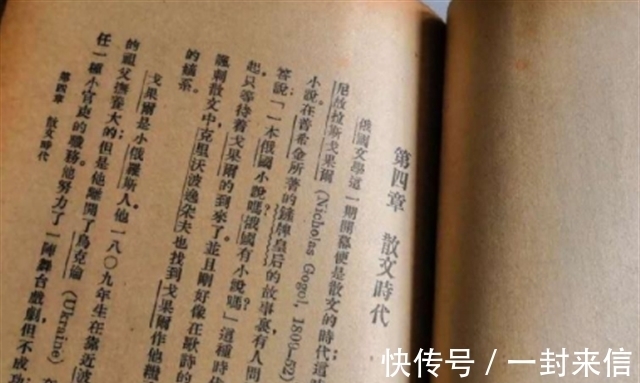 第四章　散文時代
俄國文學這一期開幕便是散文的時代這
尼故拉斯戈果爾 (Nicholas Gogol, 1809-52)
小說在普希金所著的鏟牌皇后的故事裏有人問
答說「一本俄國小說嗎俄國有小說嗎？」這種時
起，只等待着戈果爾的到來了。並且剛好像在歌詩的
諷刺散文中，克里沃波過朵夫也找到戈果爾作他
的嫡系。
戈果爾是小俄羅斯人。他一八〇九年生在靠近波
的祖父撫養大的；但是他離開了烏克倫 (Ukraine)
任一種小官吏的職務。他努力了一陣舞台戲劇但不成功
第四章　散文時代
快传号／一封来信